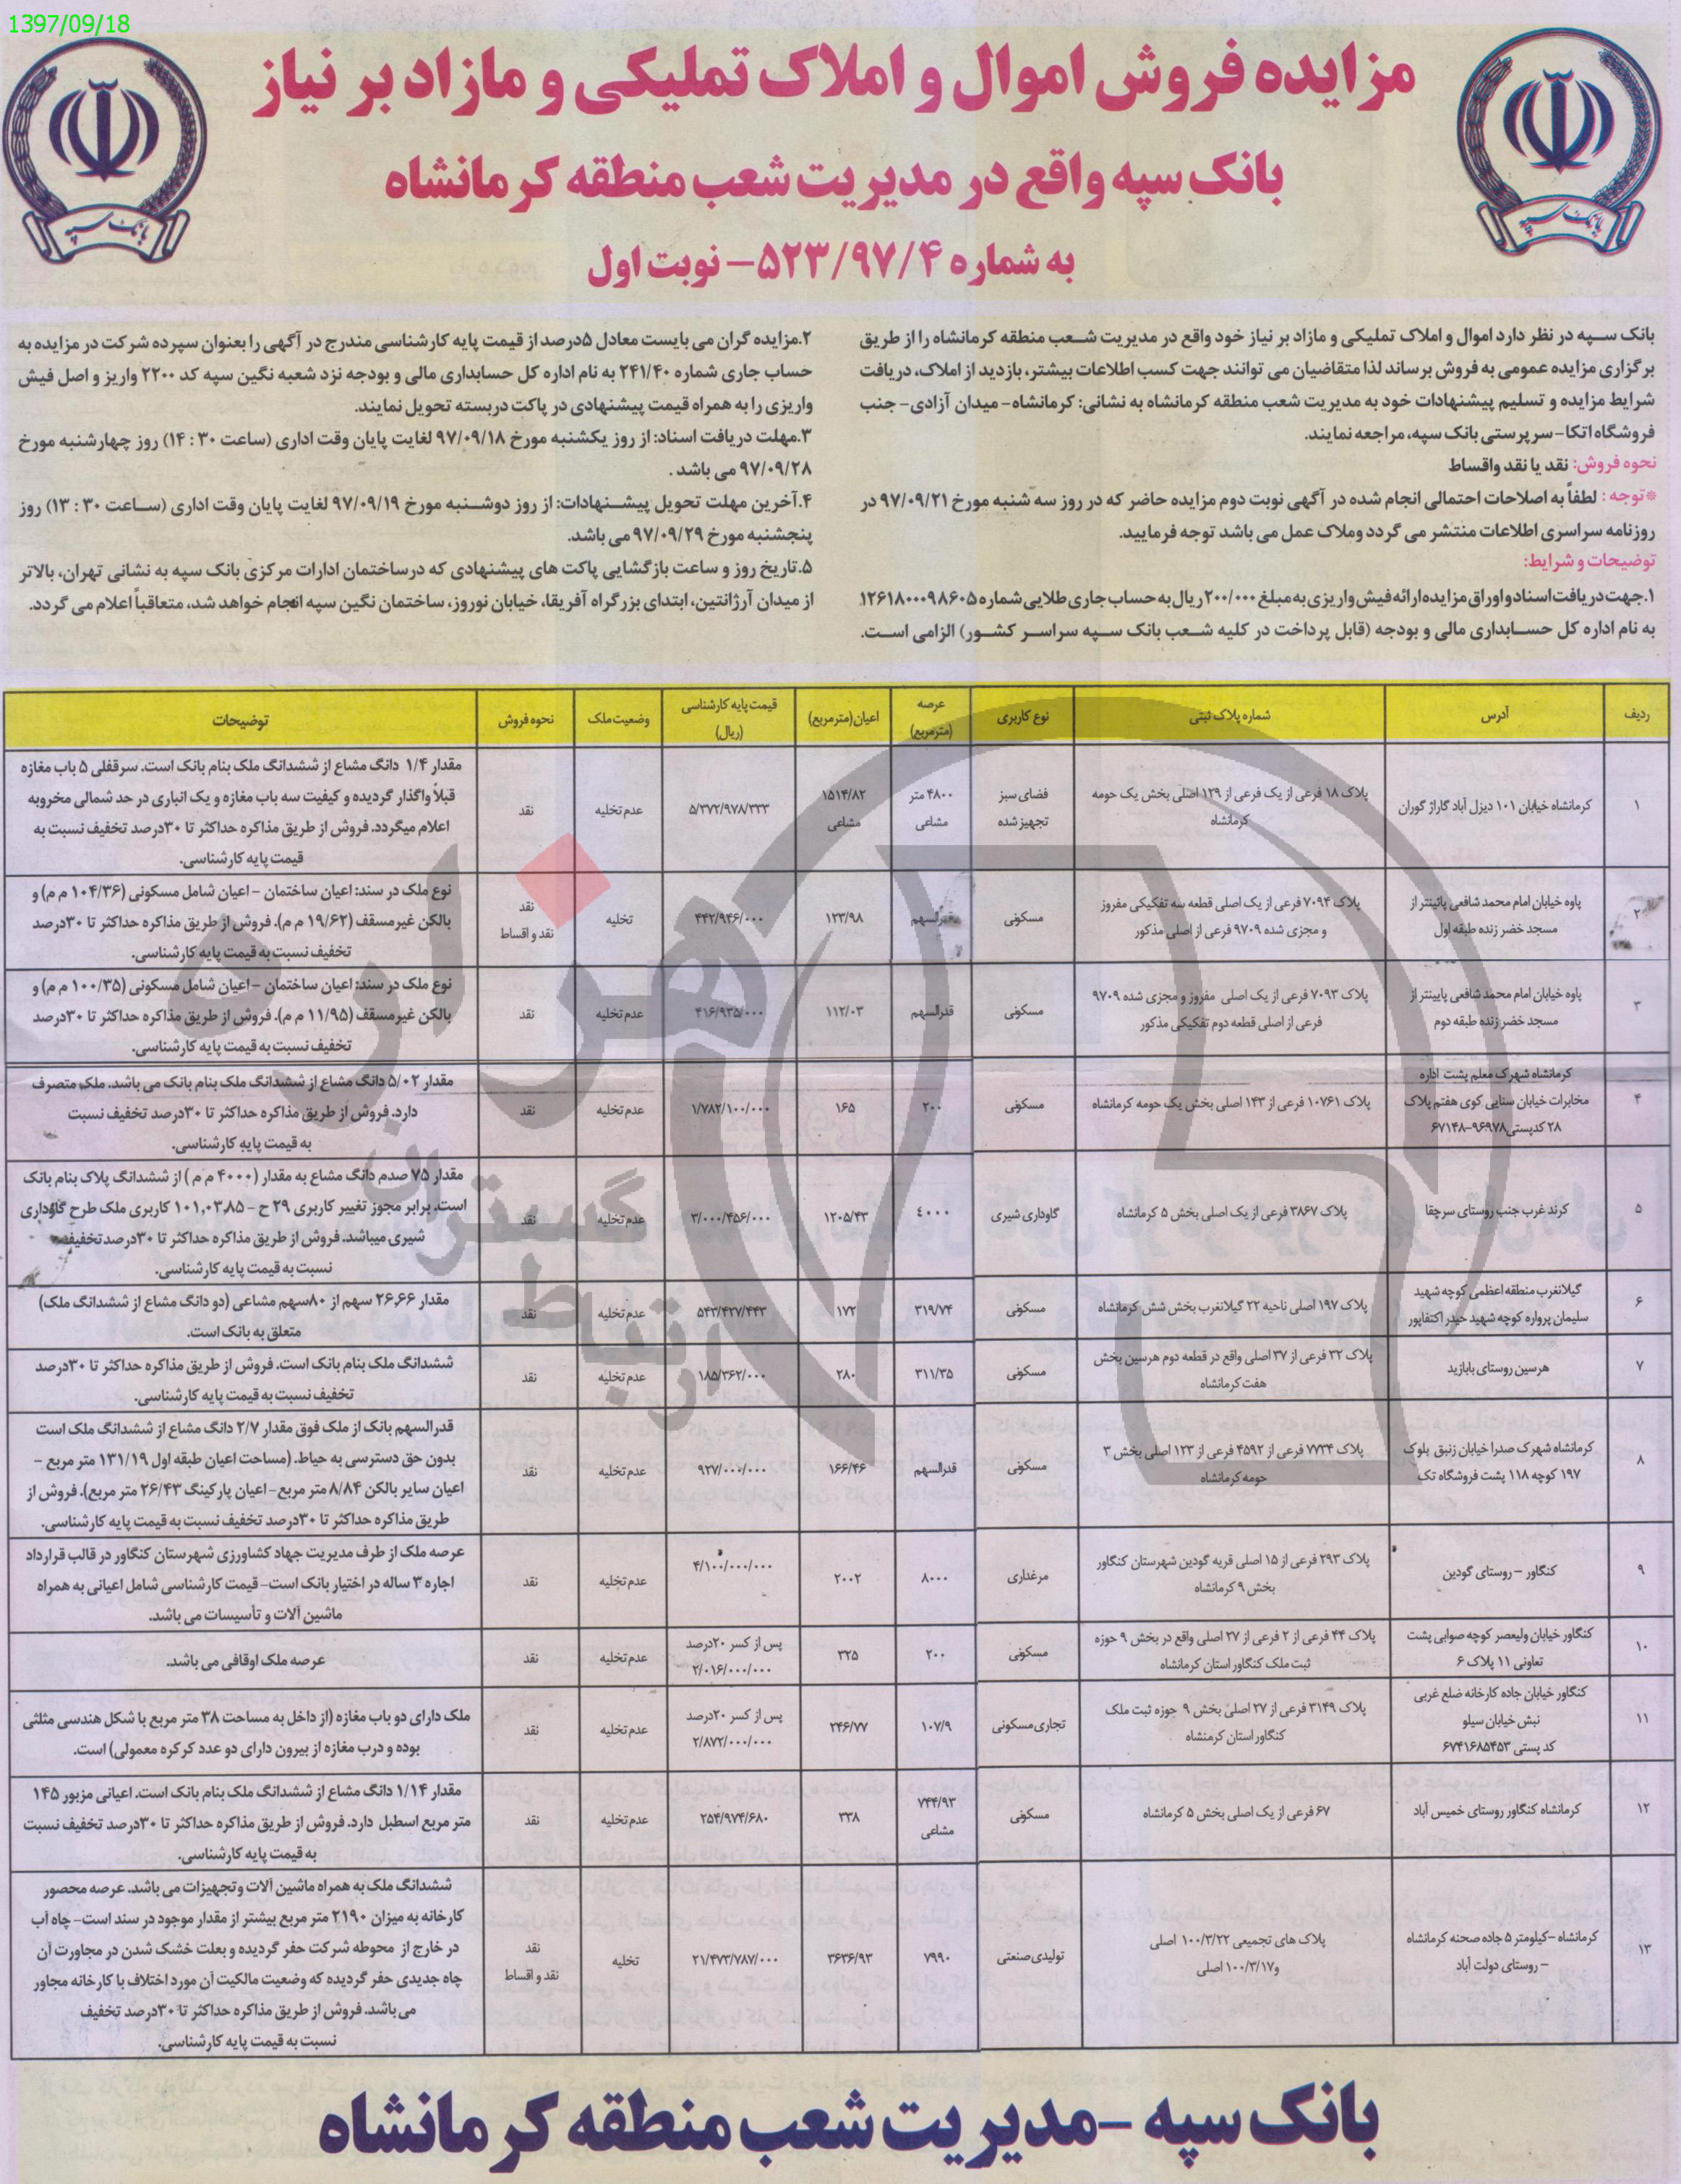 1397/09/18
مزایده فروش اموال و املاک تملیکی و مازاد بر نیاز
بانک سپه واقع در مدیریت شعب منطقه کرمانشاه
به شماره ۵۲۳/۹۷/۴– نوبت اول
بانک سپه
بانک سپه
بانک سپه در نظر دارد اموال و املاک تملیکی و مازاد بر نیاز خود واقع در مدیریت شعب منطقه کرمانشاه را از طریق
برگزاری مزایده عمومی به فروش برساند لذا متقاضیان می توانند جهت کسب اطلاعات بیشتر، بازدید از املاک، دریافت
شرایط مزایده و تسلیم پیشنهادات خود به مدیریت شعب منطقه کرمانشاه به نشانی: کرمانشاه- میدان آزادی- جنب
فروشگاه اتکا-سرپرستی بانک سپه، مراجعه نمایند.
نحوه فروش: نقد یا نقد واقساط
*توجه : لطفاً به اصلاحات احتمالی انجام شده در آگهی نوبت دوم مزایده حاضر که در روز سه شنبه مورخ ۹۷/۰۹/۲۱ در
روزنامه سراسری اطلاعات منتشر می گردد وملاک عمل می باشد توجه فرمایید.
توضیحات و شرایط:
۱.جهت دریافت اسناد و اوراق مزایده ارائه فیش واریزی به مبلغ ۲۰۰/۰۰۰ ریال به حساب جاری طلایی شماره ۱۲۶۱۸۰۰۰۹۸۶۰۵
به نام اداره کل حسابداری مالی و بودجه (قابل پرداخت در کلیه شعب بانک سپه سراسر کشور) الزامی است.
۲.مزایده گران می بایست معادل ۵درصد از قیمت پایه کارشناسی مندرج در آگهی را بعنوان سپرده شرکت در مزایده به
حساب جاری شماره ۲۴۱/۴۰ به نام اداره کل حسابداری مالی و بودجه نزد شعبه نگین سپه کد ۲۲۰۰ واریز و اصل فیش
واریزی را به همراه قیمت پیشنهادی در پاکت دربسته تحویل نمایند.
۳.مهلت دریافت اسناد: از روز یکشنبه مورخ ۹۷/۰۹/۱۸ لغایت پایان وقت اداری (ساعت ۳۰ : ۱۴) روز چهارشنبه مورخ
۹۷/۰۹/۲۸ می باشد .
۴.آخرین مهلت تحویل پیشنهادات: از روز دوشنبه مورخ ۹۷/۰۹/۱۹ لغایت پایان وقت اداری (ساعت ۳۰ : ۱۳) روز
پنجشنبه مورخ ۹۷/۰۹/۲۹ می باشد.
۵.تاریخ روز و ساعت بازگشایی پاکت های پیشنهادی که درساختمان ادارات مرکزی بانک سپه به نشانی تهران، بالاتر
از میدان آرژانتین، ابتدای بزرگراه آفریقا، خیابان نوروز، ساختمان نگین سپه انجام خواهد شد، متعاقباً اعلام می گردد.
ردیف آدرس شماره پلاک ثبتی نوع کاربری عرصه (مترمربع) اعیان(مترمربع) قیمت پایه کارشناسی (ریال) وضعیت ملک نحوه فروش توضیحات
۱ کرمانشاه خیابان ۱۰۱ دیزل آباد گاراژ گوران
پلاک ۱۸ فرعی از یک فرعی از ۱۲۹ اصلی بخش یک حومه
کرمانشاه
فضای سبز
تجهیز شده
۴۸۰۰ متر
مشاعی
۱۵۱۴/۸۲
مشاعی
۵/۳۷۲/۹۷۸/۳۳۳ عدم تخلیه نقد
مقدار ۱/۴ دانگ مشاع از ششدانگ ملک بنام بانک است. سرقفلی ۵ باب مغازه
قبلاً واگذار گردیده و کیفیت سه باب مغازه و یک انباری در حد شمالی مخروبه
اعلام میگردد. فروش از طریق مذاکره حداکثر تا ۳۰درصد تخفیف نسبت به
قیمت پایه کارشناسی.
۲ پاوه خیابان امام محمد شافعی پائینتر از
مسجد خضر زنده طبقه اول
پلاک ۷۰۹۴ فرعی از یک اصلی قطعه سه تفکیکی مفروز
و مجزی شده ۹۷۰۹ فرعی از اصلی مذکور
مسکونی قدرالسهم ۱۲۳/۹۸ ۴۴۲/۹۴۶/۰۰۰ تخلیه
نقد
نقد و اقساط
نوع ملک در سند: اعیان ساختمان – اعیان شامل مسکونی (۱۰۴/۳۶ م م) و
بالکن غیرمسقف (۱۹/۶۲ م م). فروش از طریق مذاکره حداکثر تا ۳۰درصد
تخفیف نسبت به قیمت پایه کارشناسی.
۳ پاوه خیابان امام محمد شافعی پایینتر از
مسجد خضر زنده طبقه دوم
پلاک ۷۰۹۳ فرعی از یک اصلی مفروز و مجزی شده ۹۷۰۹
فرعی از اصلی قطعه دوم تفکیکی مذکور
مسکونی قدرالسهم ۱۱۲/۰۳ ۴۱۶/۹۳۵/۰۰۰ عدم تخلیه نقد
نوع ملک در سند: اعیان ساختمان – اعیان شامل مسکونی (۱۰۰/۳۵ م م) و
بالکن غیرمسقف (۱۱/۹۵ م م). فروش از طریق مذاکره حداکثر تا ۳۰درصد
تخفیف نسبت به قیمت پایه کارشناسی.
۴ کرمانشاه شهرک معلم پشت اداره
مخابرات خیابان سنایی کوی هفتم پلاک
۲۸ کدپستی۹۶۹۷۸–۶۷۱۴۸
پلاک ۱۰۷۶۱ فرعی از ۱۴۳ اصلی بخش یک حومه کرمانشاه
مسکونی ۲۰۰ ۱۶۵ ۱/۷۸۲/۱۰۰/۰۰۰ عدم تخلیه نقد
مقدار ۵/۰۲ دانگ مشاع از ششدانگ ملک بنام بانک می باشد. ملک متصرف
دارد. فروش از طریق مذاکره حداکثر تا ۳۰درصد تخفیف نسبت
به قیمت پایه کارشناسی.
۵ کرند غرب جنب روستای سرچقا
پلاک ۳۸۶۷ فرعی از یک اصلی بخش ۵ کرمانشاه
گاوداری شیری ۴۰۰۰ ۱۲۰۵/۴۳ ۳/۰۰۰/۴۵۶/۰۰۰ عدم تخلیه نقد
مقدار ۷۵ صدم دانگ مشاع به مقدار (۴۰۰۰ م م ) از ششدانگ پلاک بنام بانک
است. برابر مجوز تغییر کاربری ۲۹ ح – ۱۰۱,۰۳,۸۵ کاربری ملک طرح گاوداری
شیری میباشد. فروش از طریق مذاکره حداکثر تا ۳۰درصدتخفیف
نسبت به قیمت پایه کارشناسی.
۶ گیلانغرب منطقه اعظمی کوچه شهید
سلیمان پرواره کوچه شهید حیدر اکتفاپور
پلاک ۱۹۷ اصلی ناحیه ۲۲ گیلانغرب بخش شش کرمانشاه
مسکونی ۳۱۹/۷۴ ۱۷۲ ۵۴۳/۴۲۷/۴۴۳ عدم تخلیه نقد
مقدار ۲۶,۶۶ سهم از ۸۰سهم مشاعی (دو دانگ مشاع از ششدانگ ملک)
متعلق به بانک است.
۷ هرسین روستای بابازید
پلاک ۳۲ فرعی از ۳۷ اصلی واقع در قطعه دوم هرسین بخش
هفت کرمانشاه
مسکونی ۳۱۱/۳۵ ۲۸۰ ۱۸۵/۳۶۲/۰۰۰ عدم تخلیه نقد
ششدانگ ملک بنام بانک است. فروش از طریق مذاکره حداکثر تا ۳۰درصد
تخفیف نسبت به قیمت پایه کارشناسی.
۸ کرمانشاه شهرک صدرا خیابان زنبق بلوک
۱۹۷ کوچه ۱۱۸ پشت فروشگاه تک
پلاک ۷۷۳۴ فرعی از ۴۵۹۲ فرعی از ۱۲۳ اصلی بخش ۳
حومه کرمانشاه
مسکونی قدرالسهم ۱۶۶/۴۶ ۹۲۷/۰۰۰/۰۰۰ عدم تخلیه نقد
قدرالسهم بانک از ملک فوق مقدار ۲/۷ دانگ مشاع از ششدانگ ملک است
بدون حق دسترسی به حیاط. (مساحت اعیان طبقه اول ۱۳۱/۱۹ متر مربع –
اعیان سایر بالکن ۸/۸۴ متر مربع- اعیان پارکینگ ۲۶/۴۳ متر مربع). فروش از
طریق مذاکره حداکثر تا ۳۰درصد تخفیف نسبت به قیمت پایه کارشناسی.
۹ کنگاور – روستای گودین
پلاک ۲۹۳ فرعی از ۱۵ اصلی قریه گودین شهرستان کنگاور
بخش ۹ کرمانشاه
مرغداری ۸۰۰۰ ۲۰۰۲ ۴/۱۰۰/۰۰۰/۰۰۰ عدم تخلیه نقد
عرصه ملک از طرف مدیریت جهاد کشاورزی شهرستان کنگاور در قالب قرارداد
اجاره ۳ ساله در اختیار بانک است- قیمت کارشناسی شامل اعیانی به همراه
ماشین آلات و تأسیسات می باشد.
۱۰ کنگاور خیابان ولیعصر کوچه صوابی پشت
تعاونی ۱۱ پلاک ۶
پلاک ۴۴ فرعی از ۲ فرعی از ۲۷ اصلی واقع در بخش ۹ حوزه
ثبت ملک کنگاور استان کرمانشاه
مسکونی ۲۰۰ ۳۲۵
پس از کسر ۲۰درصد
۲/۰۱۶/۰۰۰/۰۰۰
عدم تخلیه نقد عرصه ملک اوقافی می باشد.
۱۱ کنگاور خیابان جاده کارخانه ضلع غربی
نبش خیابان سیلو
کد پستی ۶۷۴۱۶۸۵۴۵۳
پلاک ۳۱۴۹ فرعی از ۲۷ اصلی بخش ۹ حوزه ثبت ملک
کنگاور استان کرمنشاه
تجاری مسکونی ۱۰۷/۹ ۲۴۶/۷۷
پس از کسر ۲۰درصد
۲/۸۷۲/۰۰۰/۰۰۰
عدم تخلیه نقد
ملک دارای دو باب مغازه (از داخل به مساحت ۳۸ متر مربع با شکل هندسی مثلثی
بوده و درب مغازه از بیرون دارای دو عدد کرکره معمولی) است.
۱۲ کرمانشاه کنگاور روستای خمیس آباد
۶۷ فرعی از یک اصلی بخش ۵ کرمانشاه
مسکونی
۷۴۴/۹۳
مشاعی
۳۳۸ ۲۵۴/۹۷۴/۶۸۰ عدم تخلیه نقد
مقدار ۱/۱۴ دانگ مشاع از ششدانگ ملک بنام بانک است. اعیانی مزبور ۱۴۵
متر مربع اسطبل دارد. فروش از طریق مذاکره حداکثر تا ۳۰درصد تخفیف نسبت
به قیمت پایه کارشناسی.
۱۳ کرمانشاه –کیلومتر ۵ جاده صحنه کرمانشاه
– روستای دولت آباد
پلاک های تجمیعی ۱۰۰/۳/۲۲ اصلی
و۱۰۰/۳/۱۷ اصلی
تولیدی صنعتی ۷۹۹۰ ۳۶۳۶/۹۳ ۲۱/۴۷۳/۷۸۷/۰۰۰ تخلیه
نقد
نقد و اقساط
ششدانگ ملک به همراه ماشین آلات وتجهیزات می باشد. عرصه محصور
کارخانه به میزان ۲۱۹۰ متر مربع بیشتر از مقدار موجود در سند است- چاه آب
در خارج از محوطه شرکت حفر گردیده و بعلت خشک شدن در مجاورت آن
چاه جدیدی حفر گردیده که وضعیت مالکیت آن مورد اختلاف با کارخانه مجاور
می باشد. فروش از طریق مذاکره حداکثر تا ۳۰درصد تخفیف
نسبت به قیمت پایه کارشناسی.
بانک سپه –مدیریت شعب منطقه کرمانشاه